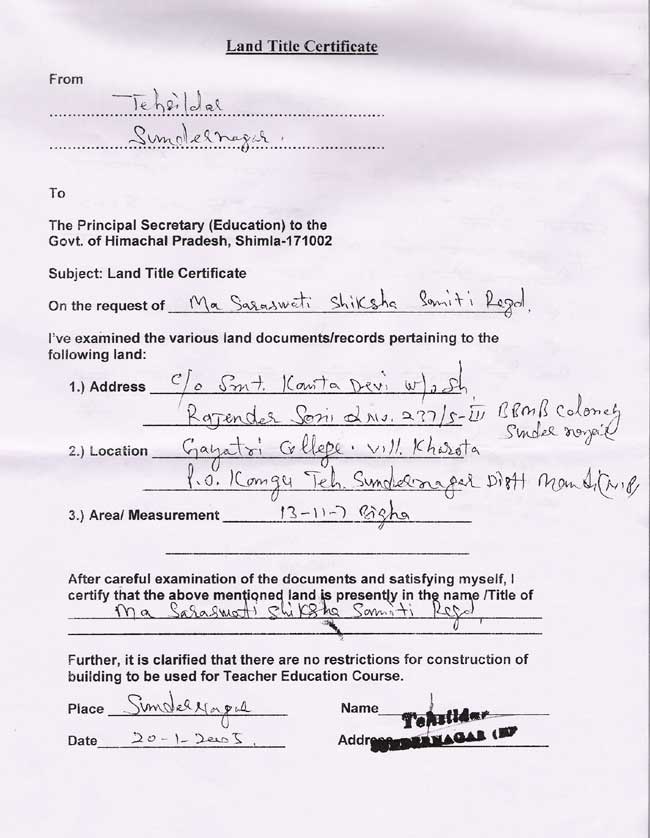 Land Title Certificate
From
Tehsildar
Sundernagar.
To
The Principal Secretary (Education) to the
Govt. of Himachal Pradesh, Shimla-171002
Subject: Land Title Certificate
On the request of Ma Saraswati Shiksha Samiti Regd.
I've examined the various land documents/records pertaining to the
following land:
1.) Address c/o Smt. Kanta Devi w/o Sh.
Rajender Soni Q No. 237/S-III BBMB Coloney
Sundernagar
2.) Location Gayatri College. Vill. Kharota
P.O. Kangu Teh. Sundernagar Distt Mandi (H.P)
3.) Area/ Measurement 13-11-7 Bigha
After careful examination of the documents and satisfying myself, I
certify that the above mentioned land is presently in the name /Title of
Ma Saraswati Shiksha Samiti Regd
Further, it is clarified that there are no restrictions for construction of
building to be used for Teacher Education Course.
Place Sundernagar Name Tehsildar
Date 20-1-2005. Address SUNDERNAGAR (HP